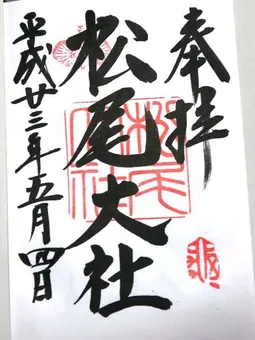 奉拝
松尾大社
平成廿三年五月四日
松尾大社